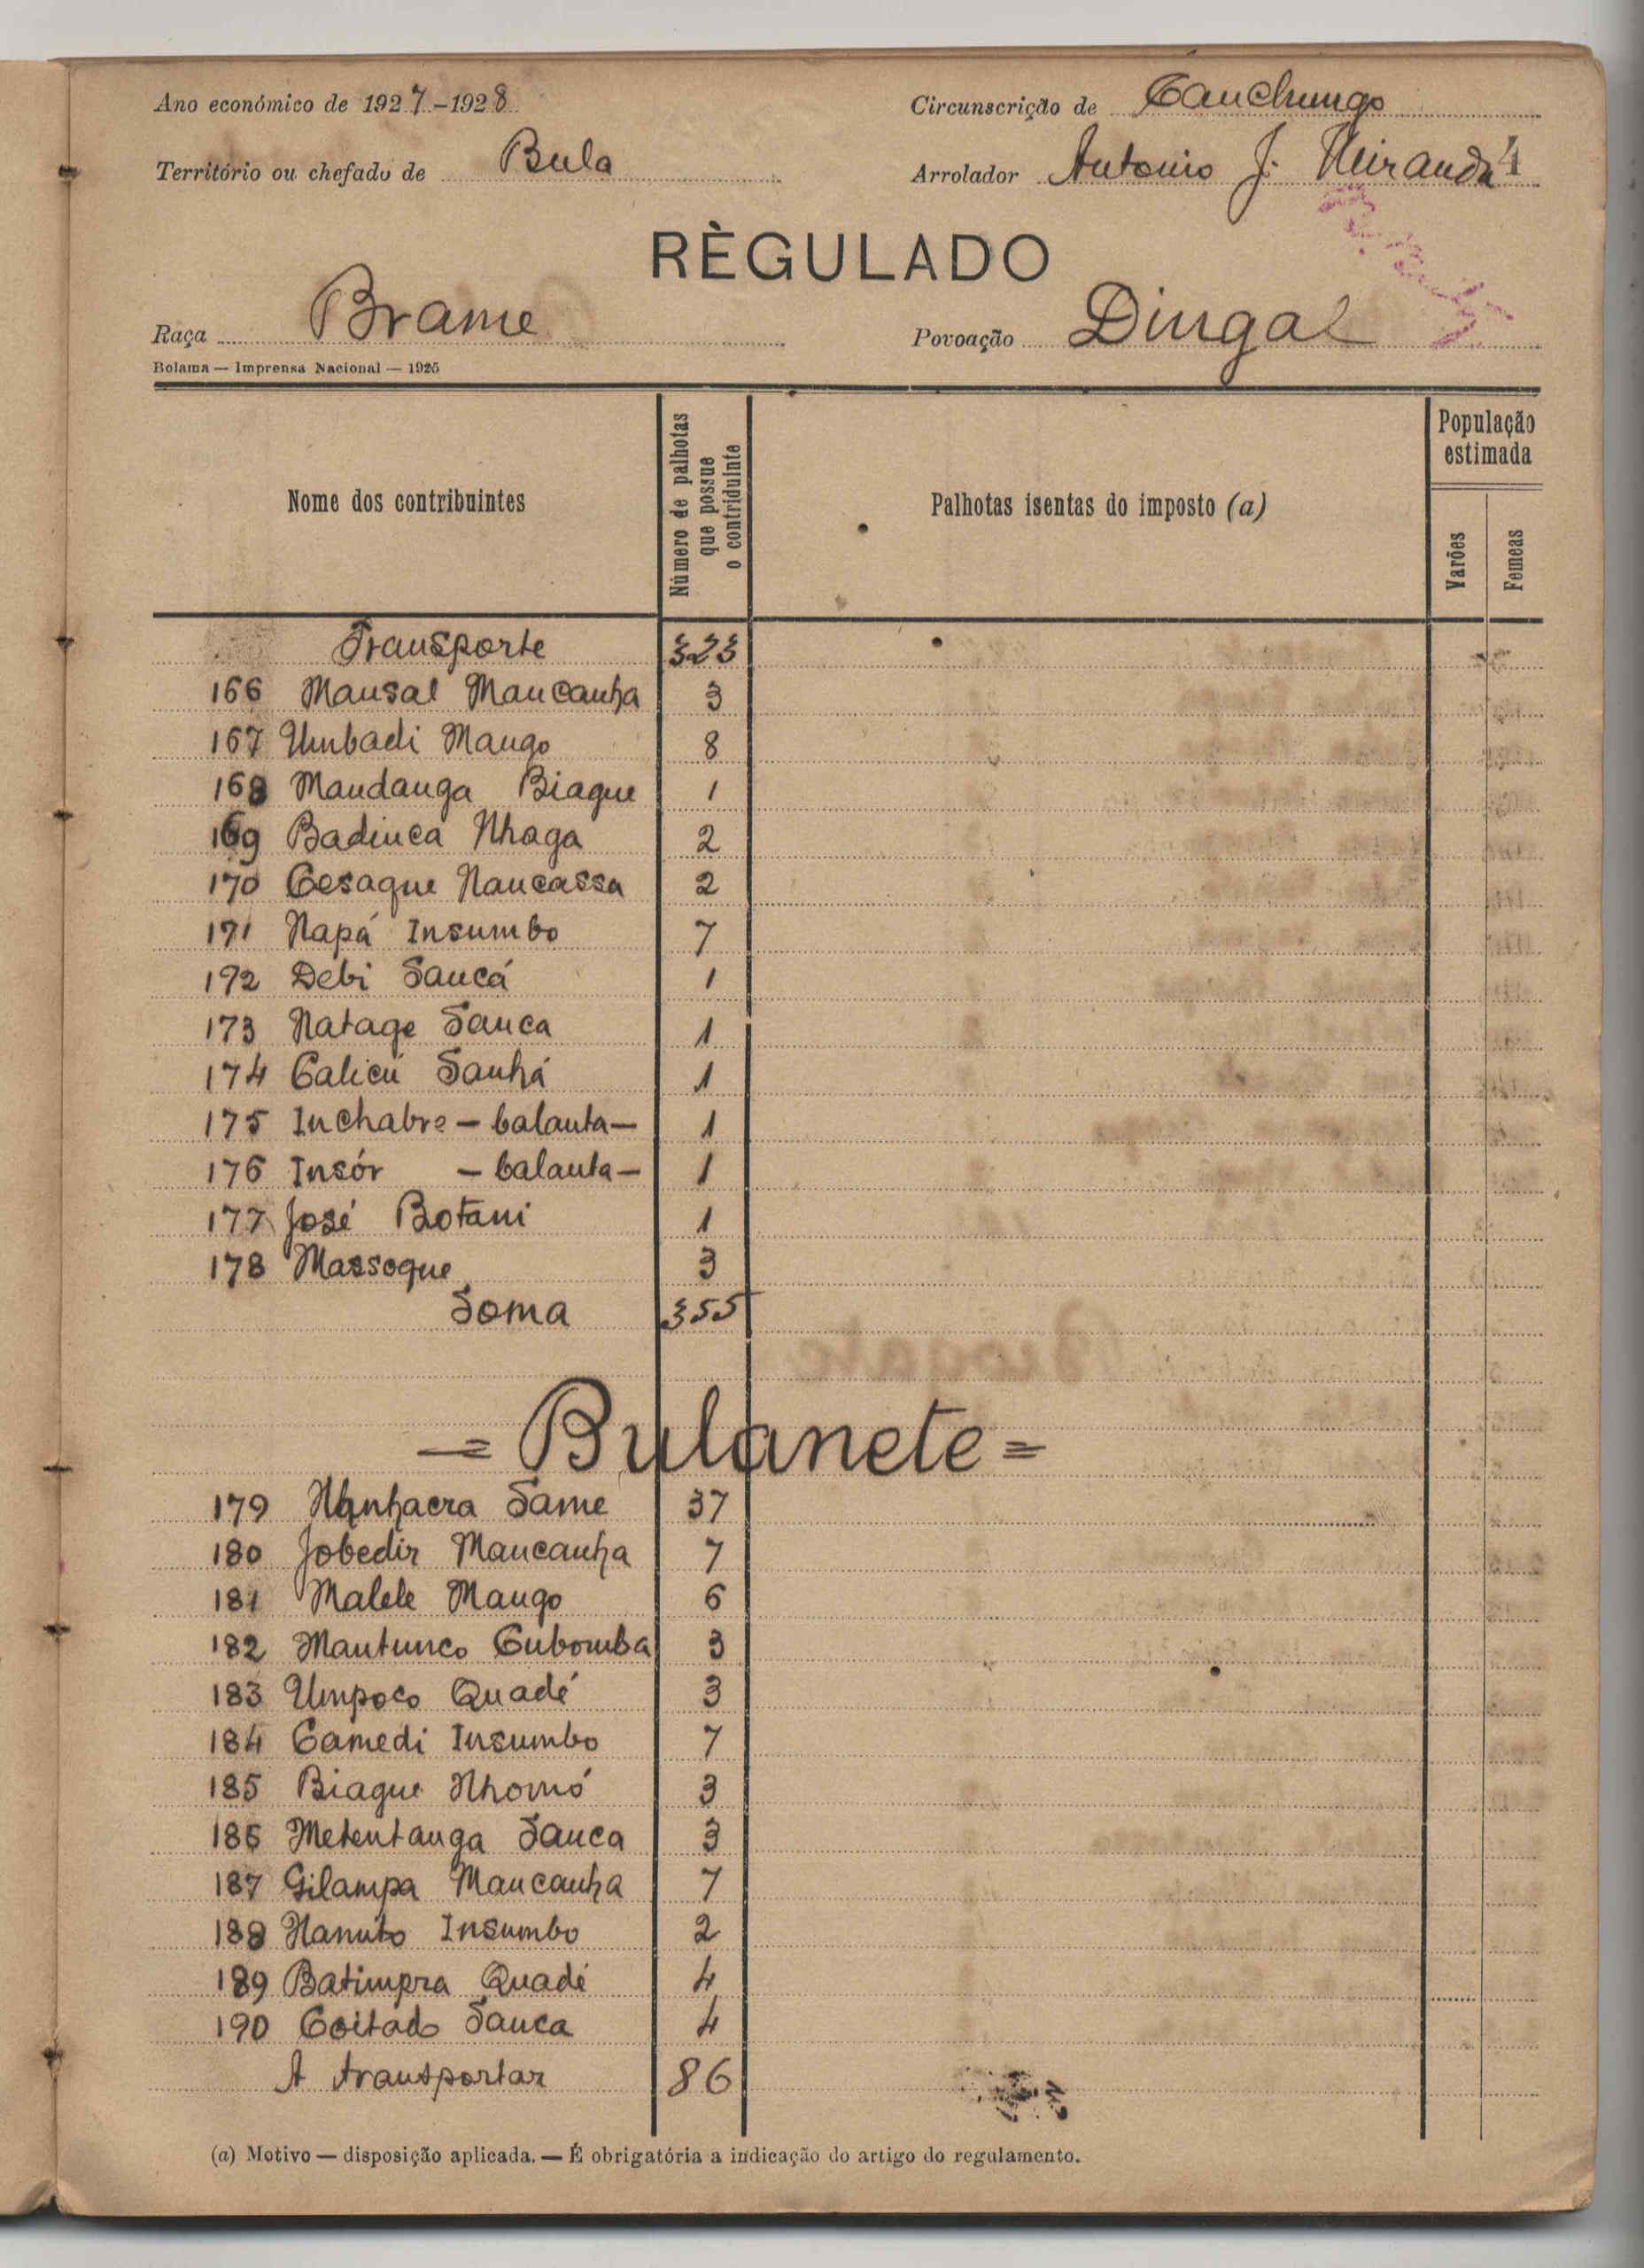 Ano económico de 1927-1928
Circunscrição de Canchungo
Território ou chefado de Bula
Arrolador Antonio J. Miranda 4
RÈGULADO
Raça Brame
Povoação Dingal
Bolama — Imprensa Nacional — 1925
Nome dos contribuintes
Número de palhotas que possue o contriduinte
Palhotas isentas do imposto (a)
População estimada
Varões
Femeas
Transporte 323
166 Mansal Mancanha 3
167 Umbadi Mango 8
168 Mandanga Biague 1
169 Badinca Nhaga 2
170 Cesaque Nancassa 2
171 Napá Insumbo 7
172 Debi Sancá 1
173 Natage Sanca 1
174 Calicú Sanhá 1
175 Inchabre - balanta - 1
176 Insór - balanta - 1
177 José Botani 1
178 Massoque 3
Soma 355
= Bulanete =
179 Nhnhacra Same 37
180 Jobedir Mancanha 7
181 Malele Mango 6
182 Mantunco Cubomba 3
183 Umpoco Quadé 3
184 Camedi Insumbo 7
185 Biague Nhomó 3
186 Metentanga Sanca 3
187 Gilampa Mancanha 7
188 Nanuto Insumbo 2
189 Batimpra Quadé 4
190 Coitado Sanca 4
A transportar 86
(a) Motivo — disposição aplicada. — É obrigatória a indicação do artigo do regulamento.